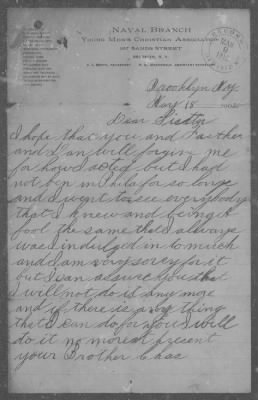 NAVAL BRANCH
YOUNG MEN'S CHRISTIAN ASSOCIATION
167 SANDS STREET
Brooklyn N.Y.
May 18 190
Dear Sister
I hope that you and Farther
and Dan will forgive me
for how I acted but I had
not ben in Phila for so long
and I went to see everybody
that I knew and being A
fool the same that I always
was indulged in to much
and I am very sorry for it
but I can assure you that
I will not do it any more
and if there is any thing
that I can do for you I will
do it no more at present
your Brother Chas